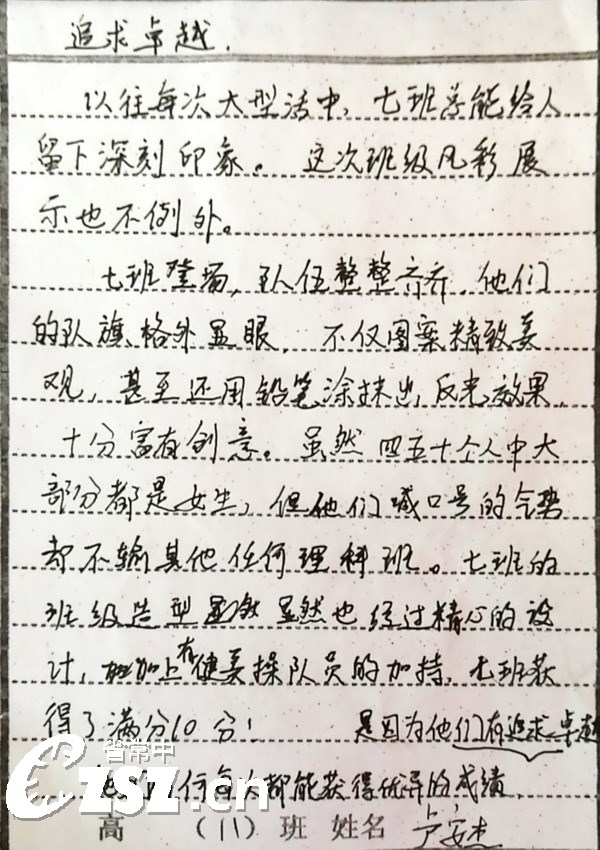 追求卓越.
以往每次大型活中，七班总能给人
留下深刻印象。这次班级风彩展
示也不例外。
七班登场，队伍整整齐齐，他们
的队旗格外显眼，不仅图案精致美
观，甚至还用铅笔涂抹出反光效果，
十分富有创意。虽然四五十个人中大
部分都是女生，但他们喊口号的气势
却不输其他任何理科班。七班的
班级造型显然也经过精心的设
计，加上有健美操队员的加持，七班获
得了满分10分！ 是因为他们有追求卓越
何每次都能获得优异的成绩。
省常中
CZSZ.cn
高 （11）班 姓名 卢安杰